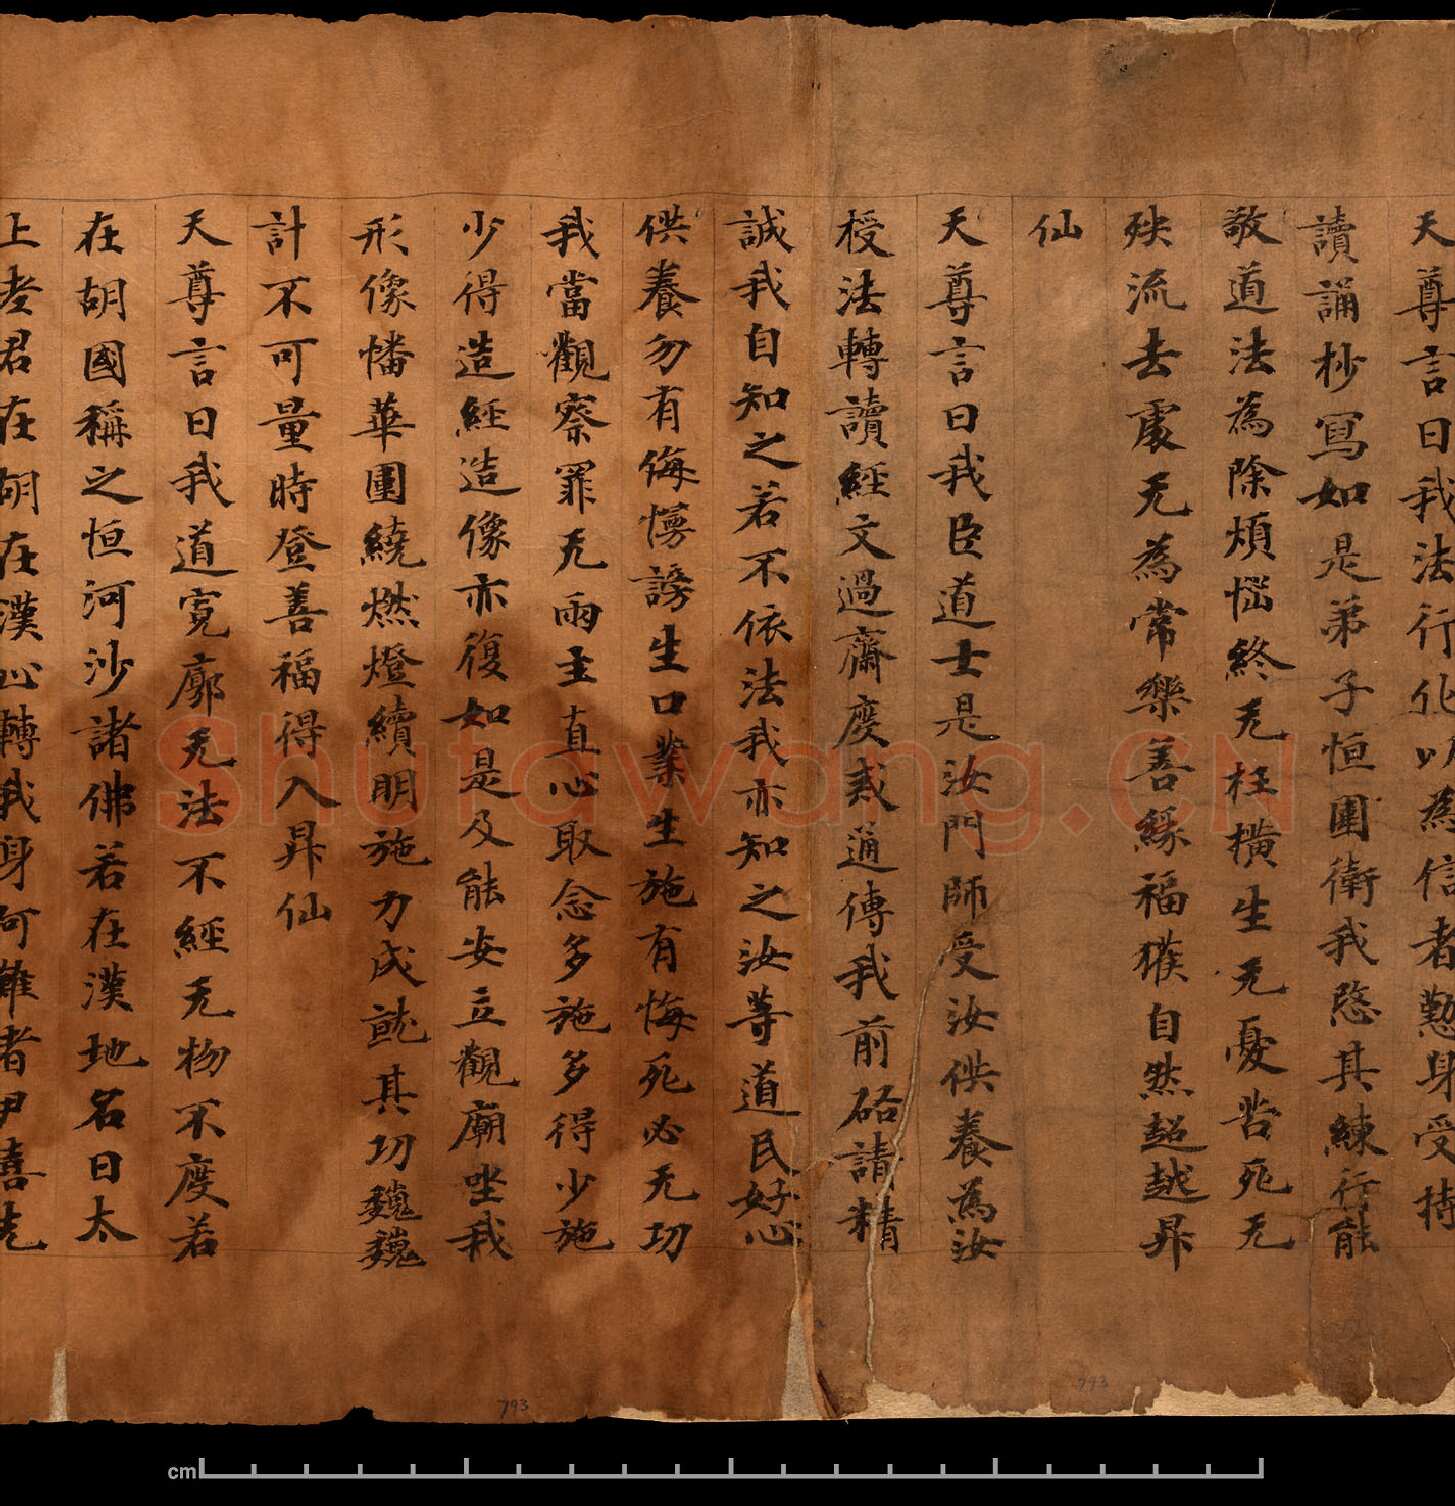 天尊言曰我法行化以為信者懃身受持
讀誦抄寫如是弟子恒圍衛我愍其練行能
敬道法為除煩惱終无枉橫生无憂苦死无
殃流去處无為常樂善緣福獲自然超越昇
仙
天尊言曰我臣道士是汝門師受汝供養為汝
授法轉讀經文過齋度戒通傳我前啟請精
誠我自知之若不依法我亦知之汝等道民好心
供養勿有侮慢謗生口業生施有悔死必无功
我當觀察罪无雨主直心取念多施多得少施
少得造經造像亦復如是及能安立觀廟坐我
形像幡華圍繞燃燈續明施力成就其功巍巍
計不可量時登善福得入昇仙
天尊言曰我道寬廓无法不經无物不度若
在胡國稱之恒河沙諸佛若在漢地名曰太
上老君在胡在漢心轉我身何難者尹喜先
Shufawang.CN
793
793
cm